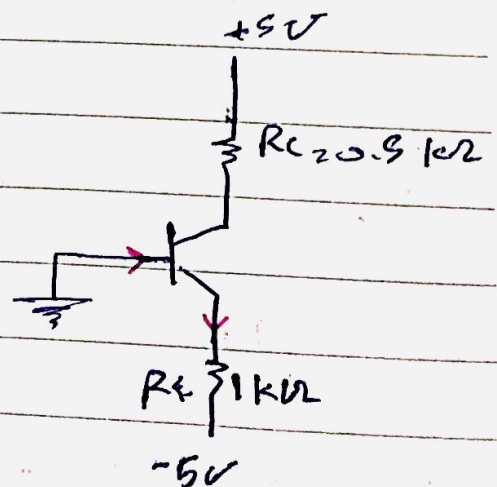 +5V
RC=0.5 kΩ
RE 1kΩ
-5V